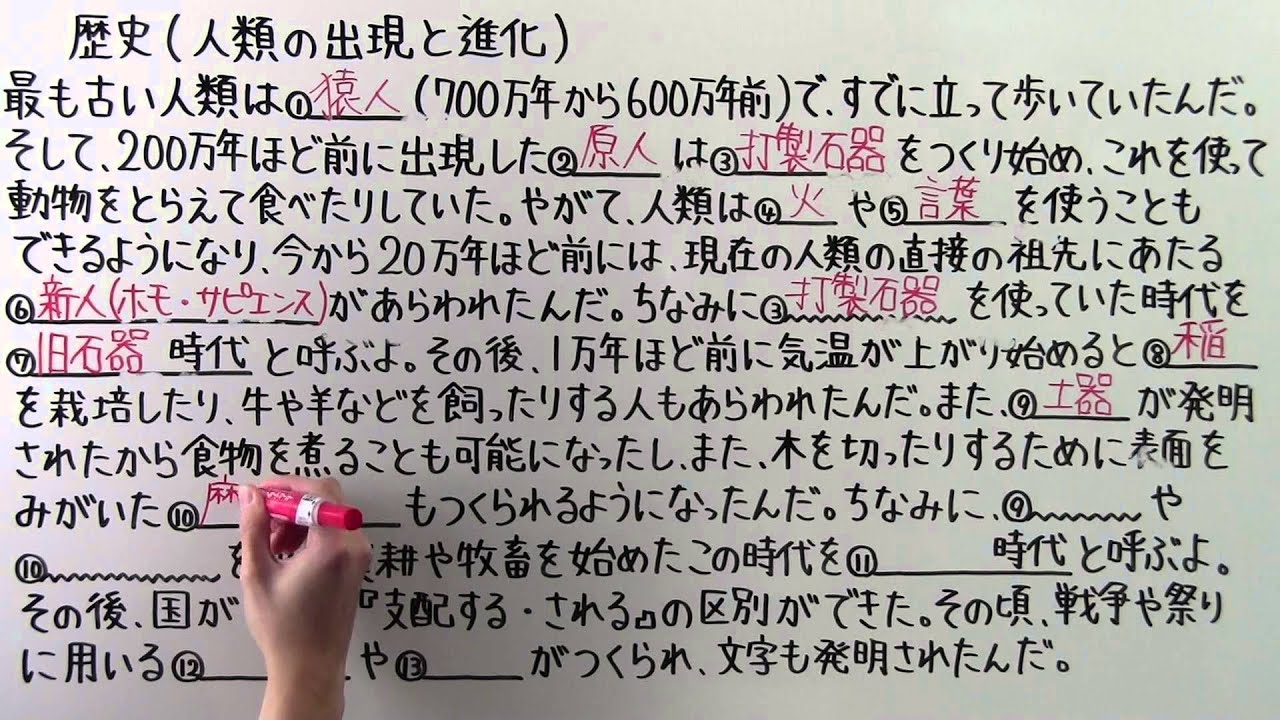 歴史(人類の出現と進化)
最も古い人類は①猿人(700万年から600万年前)で、すでに立って歩いていたんだ。
そして、200万年ほど前に出現した②原人は③打製石器をつくり始め、これを使って
動物をとらえて食べたりしていた。やがて、人類は④火や⑤言葉を使うことも
できるようになり、今から20万年ほど前には、現在の人類の直接の祖先にあたる
⑥新人(ホモ・サピエンス)があらわれたんだ。ちなみに③打製石器を使っていた時代を
⑦旧石器時代と呼ぶよ。その後、1万年ほど前に気温が上がり始めると⑧稲
を栽培したり、牛や羊などを飼ったりする人もあらわれたんだ。また、⑨土器が発明
されたから食物を煮ることも可能になったし、また、木を切ったりするために表面を
みがいた⑩もつくられるようになったんだ。ちなみに、⑨や
⑩を耕や牧畜を始めたこの時代を⑪時代と呼ぶよ。
その後、国が『支配する・される』の区別ができた。その頃、戦争や祭り
に用いる⑫や⑬がつくられ、文字も発明されたんだ。